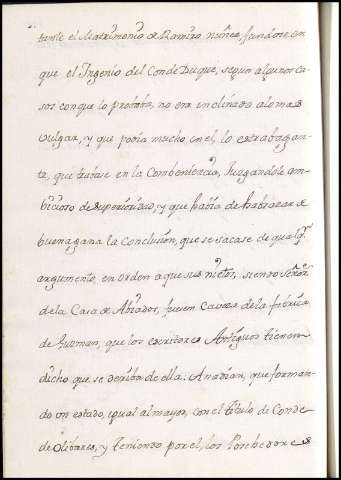 tarsele el Matrimonio de Ramiro nuñez, fundose en
que el Ingenio del Conde Duque, segun algunos ca-
sos con que lo probaba, no era inclinado a lo mas
vulgar, y que podia mucho en el, lo extrabagan-
te, que trataue en la Combeniencia, Juzgandole am-
bicioso de superioridad, y que había de habrazar de
buena gana la Conclusion, que se sacase de qualqr
argumento, en orden a que sus nietos, siendo Señores
de la Casa de Añador, fuesen Caueza de la febrica
de Guzman, que los escritores Antiguos tienen
dicho que se deriba de ella; Anadian, que forman-
do un estado, igual al mayor, con el titulo de Conde
de Olibares, y teniendo por el, los Posehedores